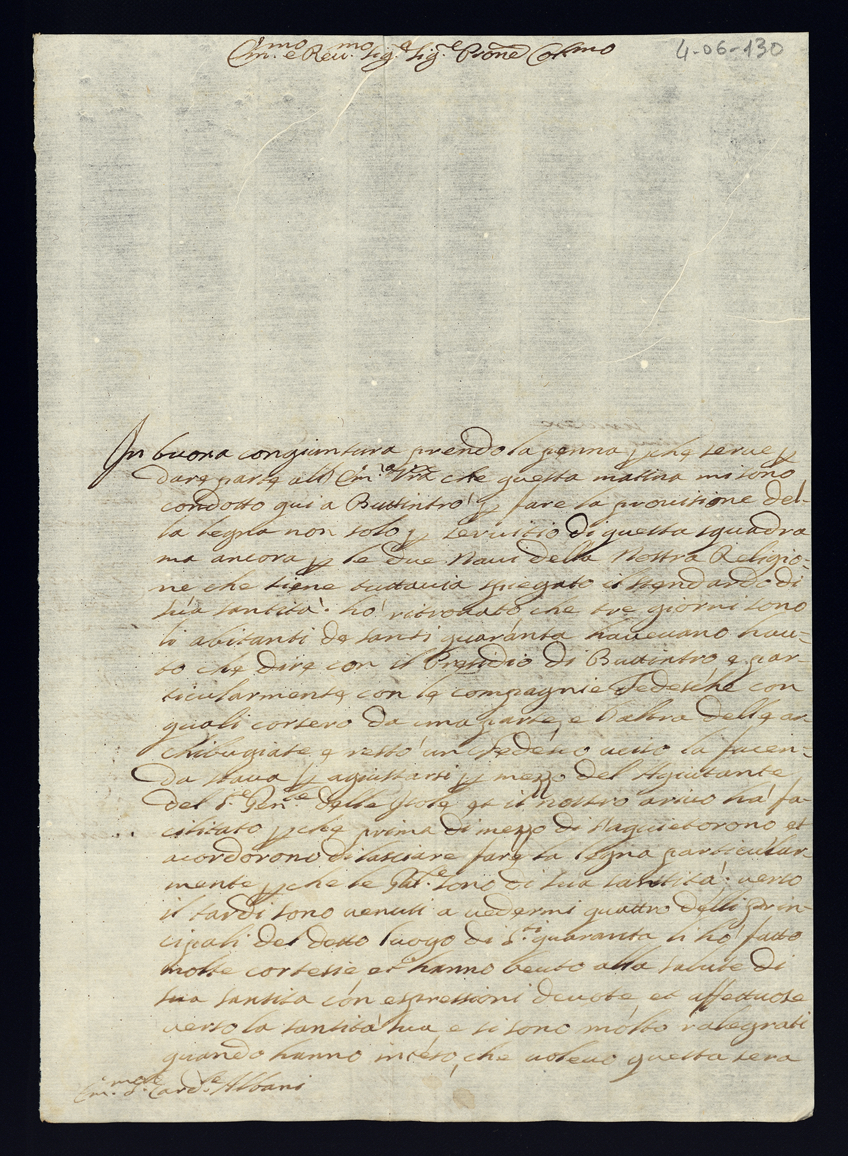 Em.mo e Rev.mo Sig.r Sig.e Pione Col.mo
4-06-130
In buona congiuntura prendo la penna, p che serue p
dare parte all Em.a Vra che questa mattina mi sono
condotto qui a Buttintrò p fare la prouisione del-
la legna non solo p seruitio di questa squadra
ma ancora p le due Naui della Nostra Religio-
ne che tiene tuttauia spiegato il stendardo di
sua santità. hò ritrouato che tre giorni sono
li abitanti de santi quaranta haueuano hau-
to che dire con il Presidio di Buttintrò, e par-
ticularmente con le compagnie Tedesche con
quali corsero da una parte, e l'altra delle ar-
chibugiate, e restò un Tedesco uciso la facen-
da staua p agiustarsi p mezzo del Agiutante
del S.e Gen.le delle Isole et il nostro ariuo hà fa-
cilitato p che prima di mezzo di s'aquietorono et
acordorono di lasciare fare la legna particular-
mente p che le Gal.e sono di sua santità. verso
il tardi sono uenuti a uedermi quattro delli prin-
cipali del detto luogo di S.ti quaranta li hò fatto
molte cortesie et hanno beuto alla salute di
sua santità con espressioni deuote, et affettuose
uerso la santità sua, e si sono molto ralegrati
quando hanno inteso, che uoleuo questa sera
Em.mo S.e Card.le Albani